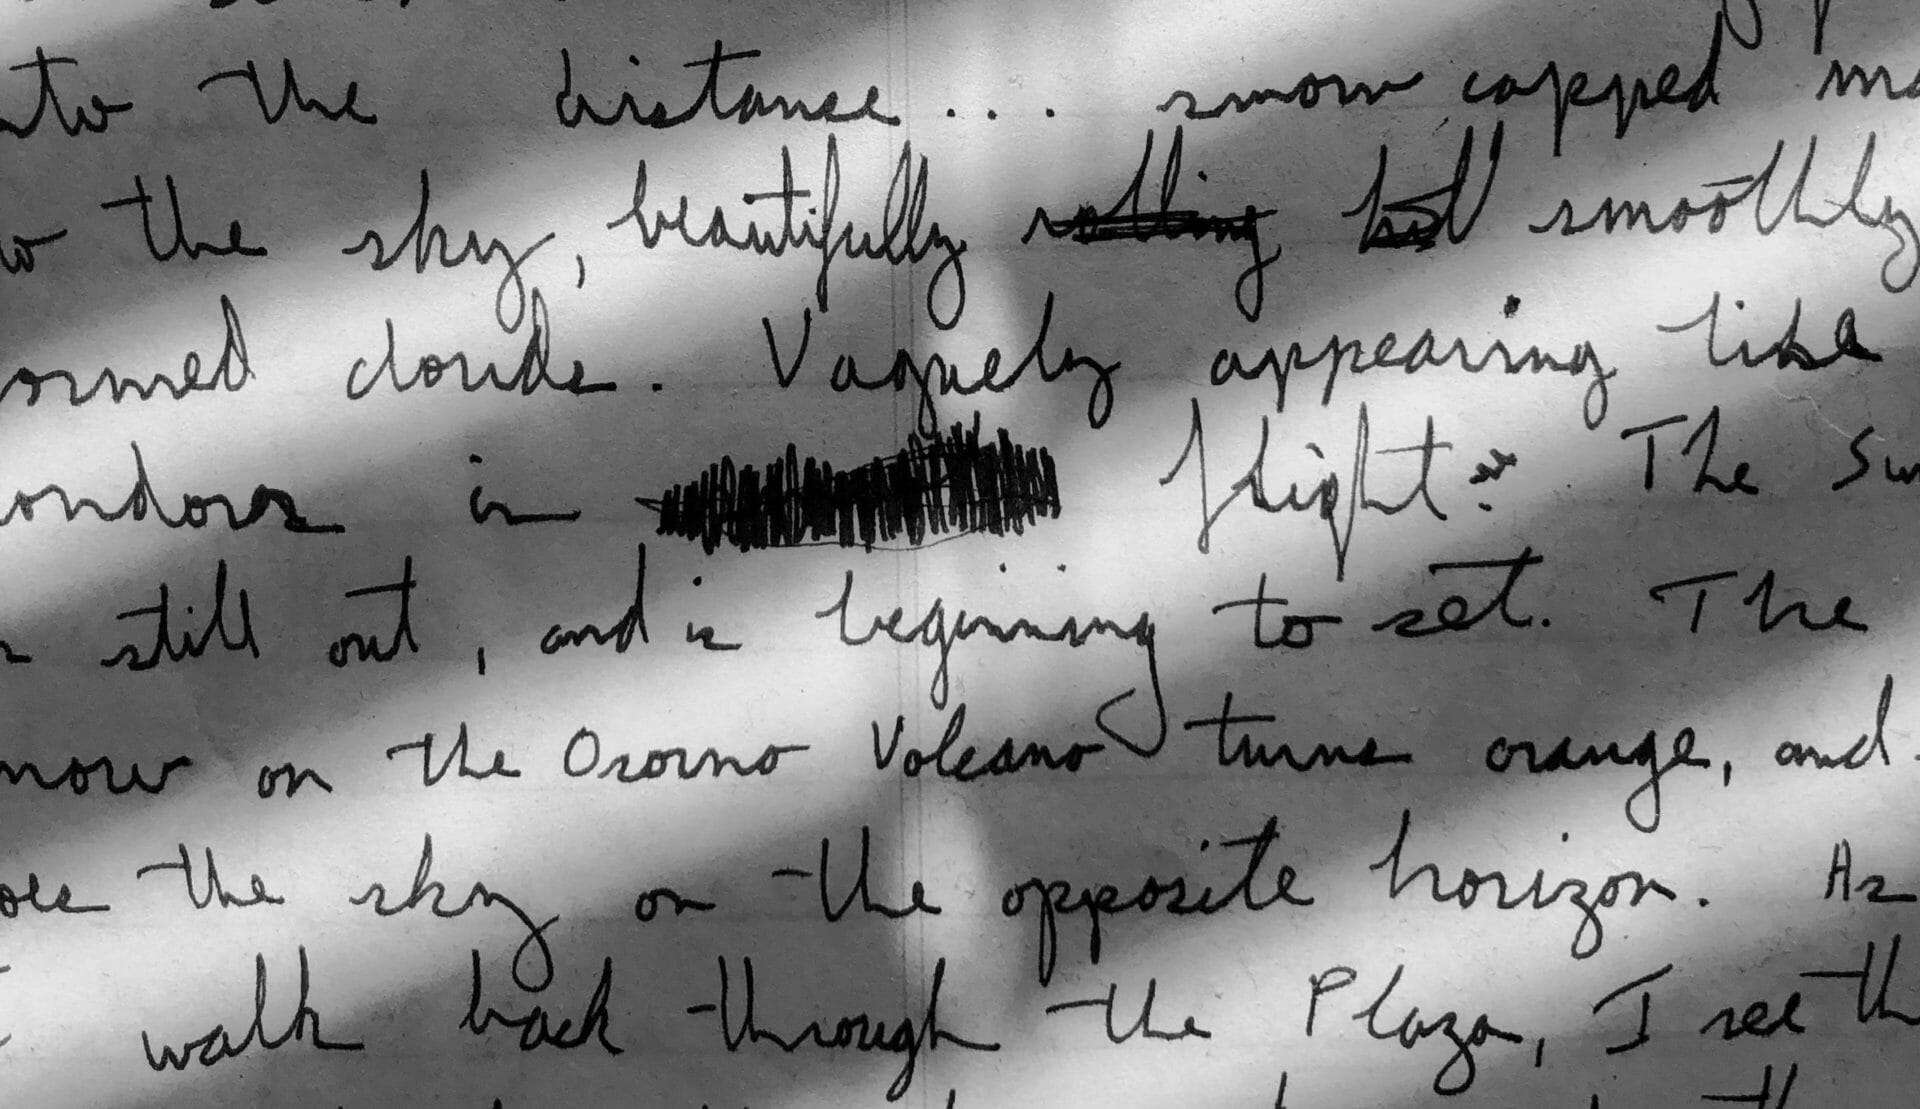 nto the distance... snow capped mo
w the sky, beautifully rolling smoothly
ormed clouds. Vaguely appearing like
ondors in flight. The su
n still out, and is beginning to set. The
now on the Osorno Volcano turns orange, and
oes the sky on the opposite horizon. As
walk back through the Plaza, I see th